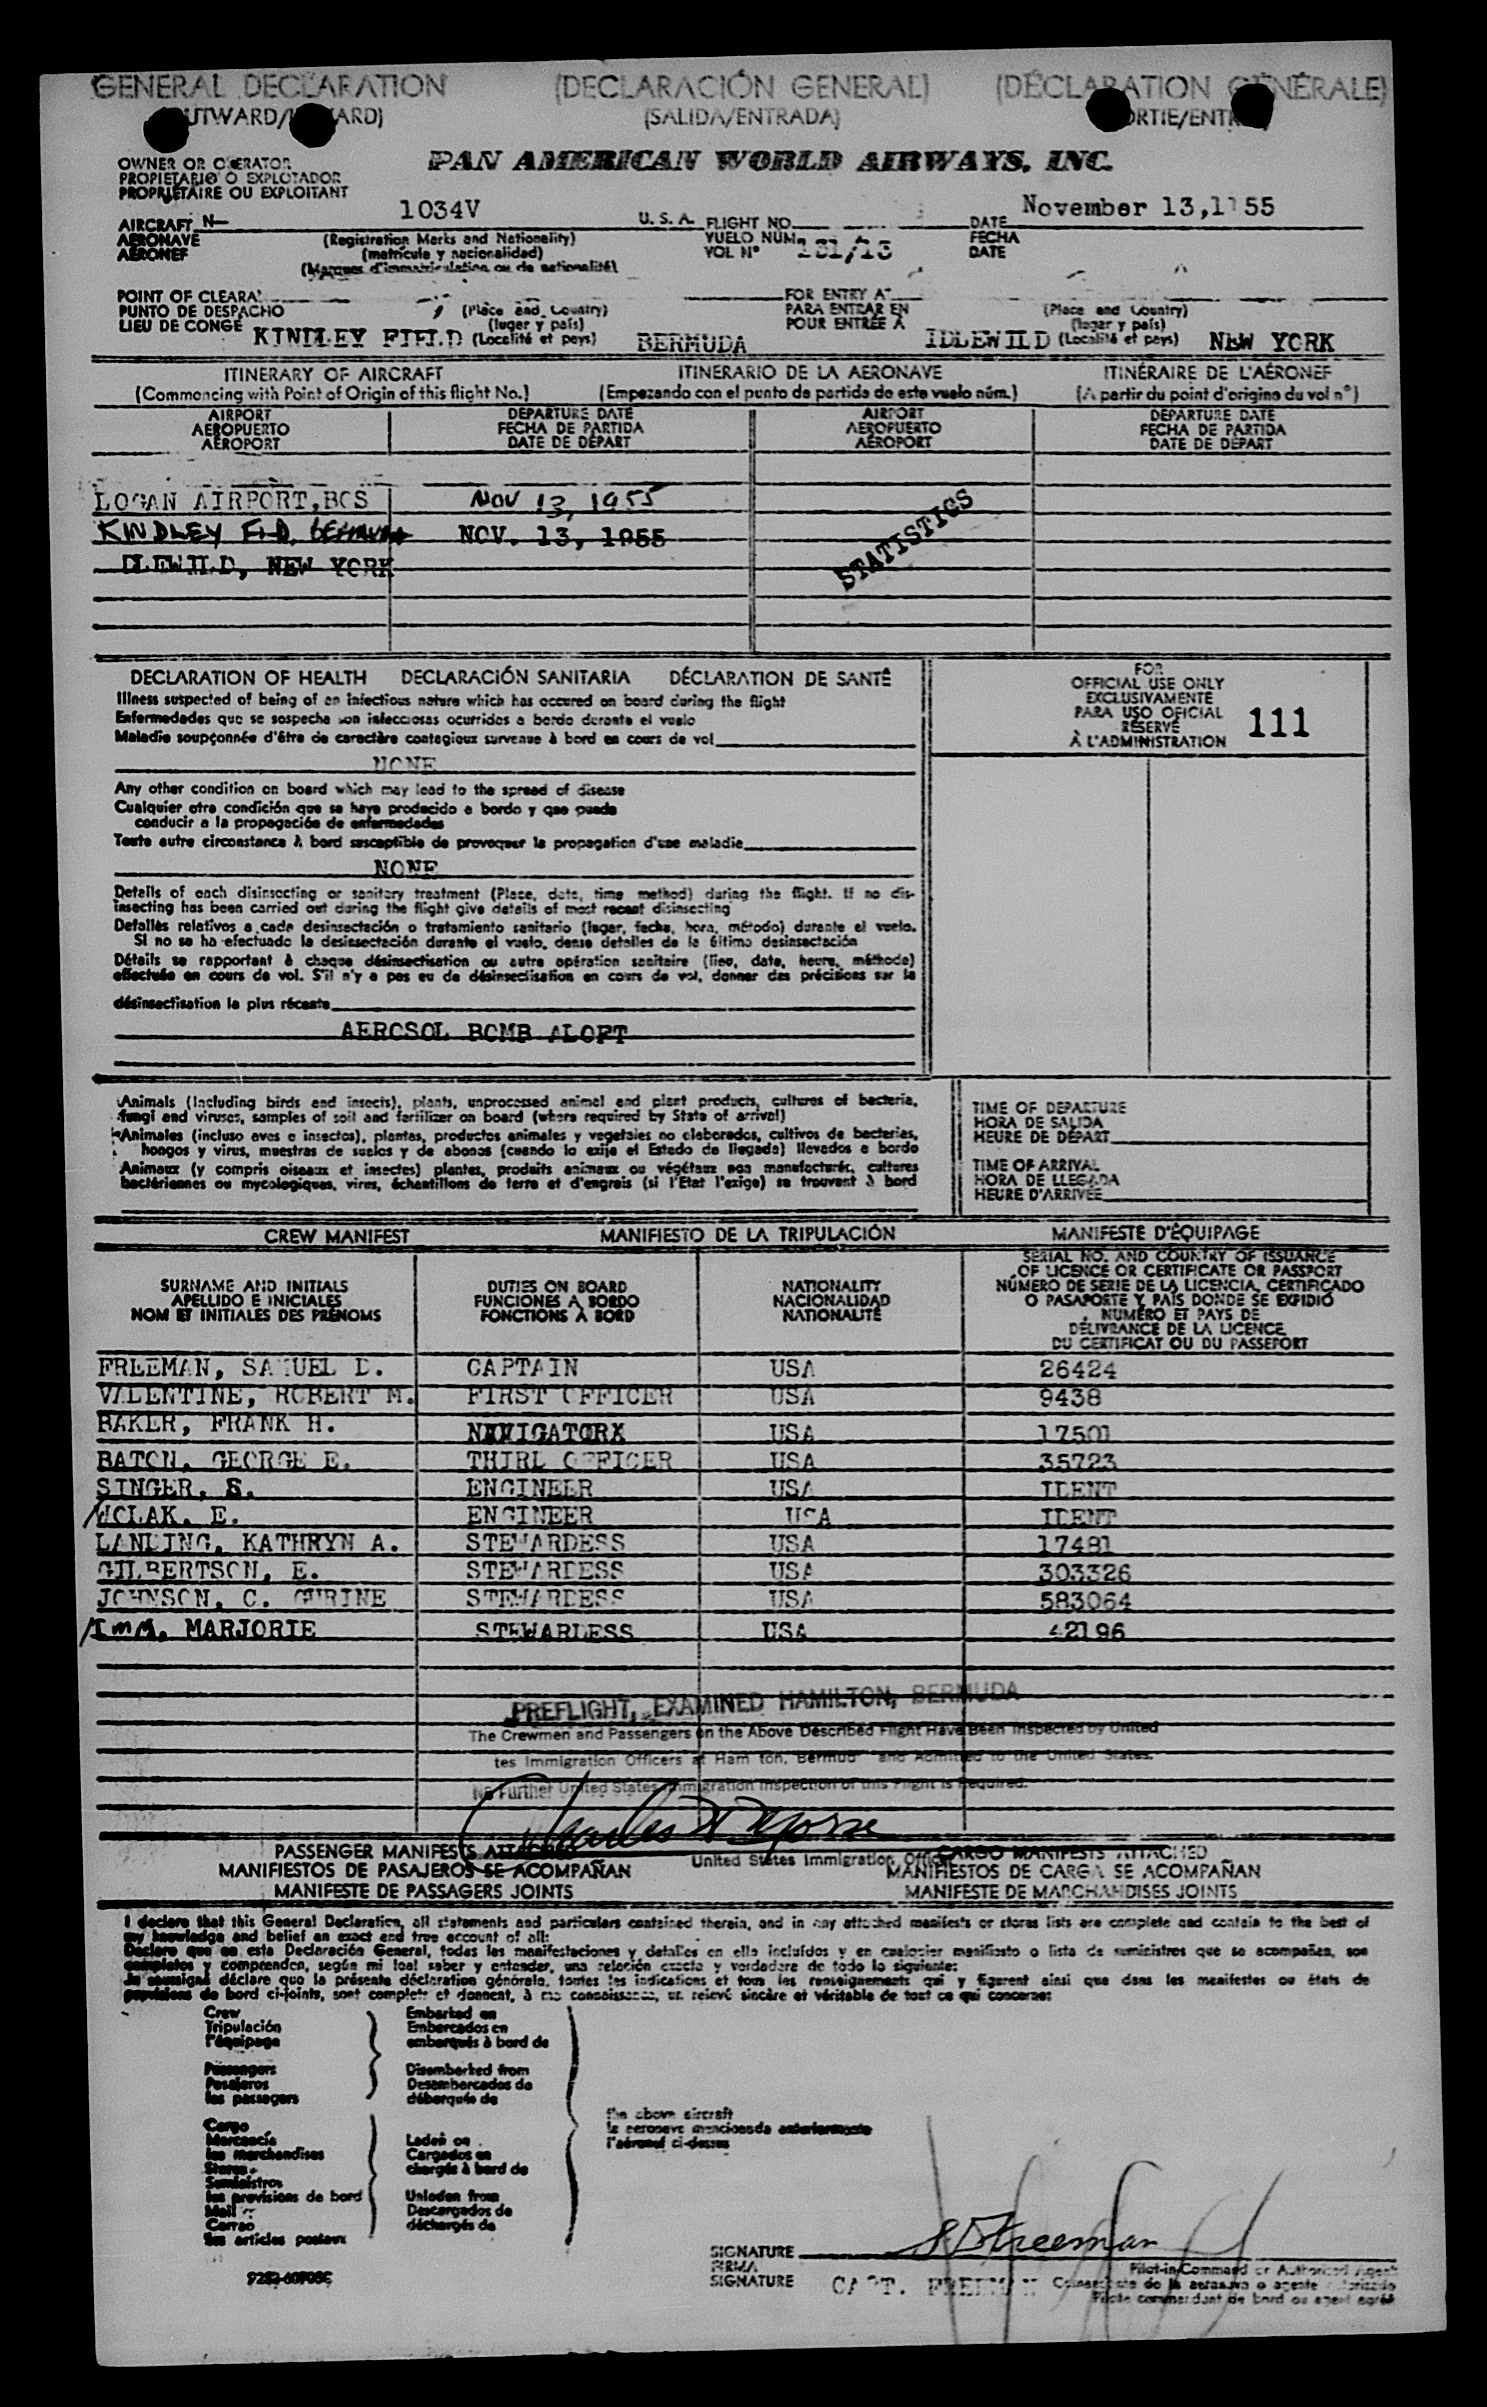 GENERAL DECLARATION (DECLARACIÓN GENERAL) (DÉCLARATION GÉNÉRALE)
(SALIDA/ENTRADA)
OWNER OR OPERATOR
PROPIETARIO O EXPLOTADOR
PROPRIÉTAIRE OU EXPLOITANT
PAN AMERICAN WORLD AIRWAYS, INC.
AIRCRAFT N- 1034V U. S. A. FLIGHT NO. DATE November 13,1 55
AERONAVE (Registration Marks and Nationality) VUELO NÚM. FECHA
AÉRONEF (matrícula y nacionalidad) VOL N° /13 DATE
(Marques d'immatriculation ou de nationalité)
POINT OF CLEARA FOR ENTRY AT
PUNTO DE DESPACHO (Place and Country) PARA ENTRAR EN (Place and Country)
LIEU DE CONGÉ (lugar y país) POUR ENTRÉE À (lugar y país)
KINDLEY FIELD (Localité et pays) BERMUDA IDLEWILD (Localité et pays) NEW YORK
ITINERARY OF AIRCRAFT ITINERARIO DE LA AERONAVE ITINÉRAIRE DE L'AÉRONEF
(Commencing with Point of Origin of this flight No.) (Empezando con el punto de partida de este vuelo núm.) (A partir du point d'origine du vol n°)
AIRPORT DEPARTURE DATE AIRPORT DEPARTURE DATE
AEROPUERTO FECHA DE PARTIDA AEROPUERTO FECHA DE PARTIDA
AÉROPORT DATE DE DÉPART AÉROPORT DATE DE DÉPART
LOGAN AIRPORT,BOS NOV 13, 1955
KINDLEY FLD, BERMUDA NOV. 13, 1955
DLEWILD, NEW YORK
STATISTICS
DECLARATION OF HEALTH DECLARACIÓN SANITARIA DÉCLARATION DE SANTÉ
Illness suspected of being of an infectious nature which has occured on board during the flight
Enfermedades que se sospecha son infecciosas ocurridas a bordo durante el vuelo
Maladie soupçonnée d'être de caractère contagieux survenue à bord en cours de vol
NONE
FOR
OFFICIAL USE ONLY
EXCLUSIVAMENTE
PARA USO OFICIAL
RÉSERVÉ
À L'ADMINISTRATION
111
Any other condition on board which may lead to the spread of disease
Cualquier otra condición que se haya producido a bordo y que pueda
conducir a la propagación de enfermedades
Toute autre circonstance à bord susceptible de provoquer la propagation d'une maladie
NONE
Details of each disinsecting or sanitary treatment (Place, date, time method) during the flight. If no dis-
insecting has been carried out during the flight give details of most recent disinsecting
Detalles relativos a cada desinsectación o tratamiento sanitario (lugar, fecha, hora, método) durante el vuelo.
Si no se ha efectuado la desinsectación durante el vuelo, dense detalles de la última desinsectación
Détails se rapportant à chaque désinsectisation ou autre opération sanitaire (lieu, date, heure, méthode)
effectuée en cours de vol. S'il n'y a pas eu de désinsectisation en cours de vol, donner des précisions sur la
désinsectisation la plus récente
AEROSOL BOMB ALOFT
Animals (Including birds and insects), plants, unprocessed animal and plant products, cultures of bacteria,
fungi and viruses, samples of soil and fertilizer on board (where required by State of arrival)
Animales (incluso aves e insectos), plantas, productos animales y vegetales no elaborados, cultivos de bacterias,
hongos y virus, muestras de suelos y de abonos (cuando lo exija el Estado de llegada) llevados a bordo
Animaux (y compris oiseaux et insectes) plantes, produits animaux ou végétaux non manufacturés, cultures
bactériennes ou mycologiques, virus, échantillons de terre et d'engrais (si l'Etat l'exige) se trouvant à bord
TIME OF DEPARTURE
HORA DE SALIDA
HEURE DE DÉPART
TIME OF ARRIVAL
HORA DE LLEGADA
HEURE D'ARRIVÉE
CREW MANIFEST MANIFIESTO DE LA TRIPULACIÓN MANIFESTE D'ÉQUIPAGE
SURNAME AND INITIALS
APELLIDO E INICIALES
NOM ET INITIALES DES PRÉNOMS
DUTIES ON BOARD
FUNCIONES A BORDO
FONCTIONS À BORD
NATIONALITY
NACIONALIDAD
NATIONALITÉ
SERIAL NO. AND COUNTRY OF ISSUANCE
OF LICENCE OR CERTIFICATE OR PASSPORT
NÚMERO DE SERIE DE LA LICENCIA, CERTIFICADO
O PASAPORTE Y PAÍS DONDE SE EXPIDIÓ
NUMÉRO ET PAYS DE
DÉLIVRANCE DE LA LICENCE
DU CERTIFICAT OU DU PASSEPORT
FREEMAN, SAMUEL D. CAPTAIN USA 26424
VALENTINE, ROBERT M. FIRST OFFICER USA 9438
BAKER, FRANK H. NAVIGATORX USA 17501
BATON, GEORGE E. THIRD OFFICER USA 35723
SINGER, S. ENGINEER USA IDENT
WOLAK, E. ENGINEER USA IDENT
LANDING, KATHRYN A. STEWARDESS USA 17481
GILBERTSON, E. STEWARDESS USA 303326
JOHNSON, C. STEWARDESS USA 583064
IMM, MARJORIE STEWARDESS USA 42196
PREFLIGHT, EXAMINED HAMILTON, BERMUDA
The Crewmen and Passengers on the Above Described Flight Have Been Inspected by United
tes Immigration Officers at Ham ton, Bermud and Admitted to the United States.
No Further United States Immigration Inspection of this Flight is Required.
United States Immigration Officer
PASSENGER MANIFESTS ATTACHED CARGO MANIFESTS ATTACHED
MANIFIESTOS DE PASAJEROS SE ACOMPAÑAN MANIFIESTOS DE CARGA SE ACOMPAÑAN
MANIFESTE DE PASSAGERS JOINTS MANIFESTE DE MARCHANDISES JOINTS
I declare that this General Declaration, all statements and particulars contained therein, and in any attached manifests or stores lists are complete and contain to the best of
my knowledge and belief an exact and true account of all:
Declaro que en esta Declaración General, todas las manifestaciones y detalles en ella incluídos y en cualquier manifiesto o lista de suministros que se acompañan, son
completos y comprenden, según mi leal saber y entender, una relación exacta y verdadera de todo lo siguiente:
Je soussigné déclare que la présente déclaration générale, toutes les indications et tous les renseignements qui y figurent ainsi que dans les manifestes ou états de
provisions de bord ci-joints, sont complets et donnent, à ma connaissance, un relevé sincère et véritable de tout ce qui concerne:
Crew Embarked on
Tripulación Embarcados en
l'équipage embarqués à bord de
Passengers Disembarked from
Pasajeros Desembarcados de
les passagers débarqués de
the above aircraft
la aeronave mencionada anteriormente
l'aéronef ci-dessus
Cargo
Mercancía Laden on
les marchandises Cargados en
Stores chargés à bord de
Suministros
les provisions de bord Unladen from
Mail Descargados de
Correo déchargés de
les articles postaux
SIGNATURE S D Freeman
FIRMA Pilot-in-Command or Authorized Agent
SIGNATURE CAPT. FREEMAN
Pilote commandant de bord ou agent agréé